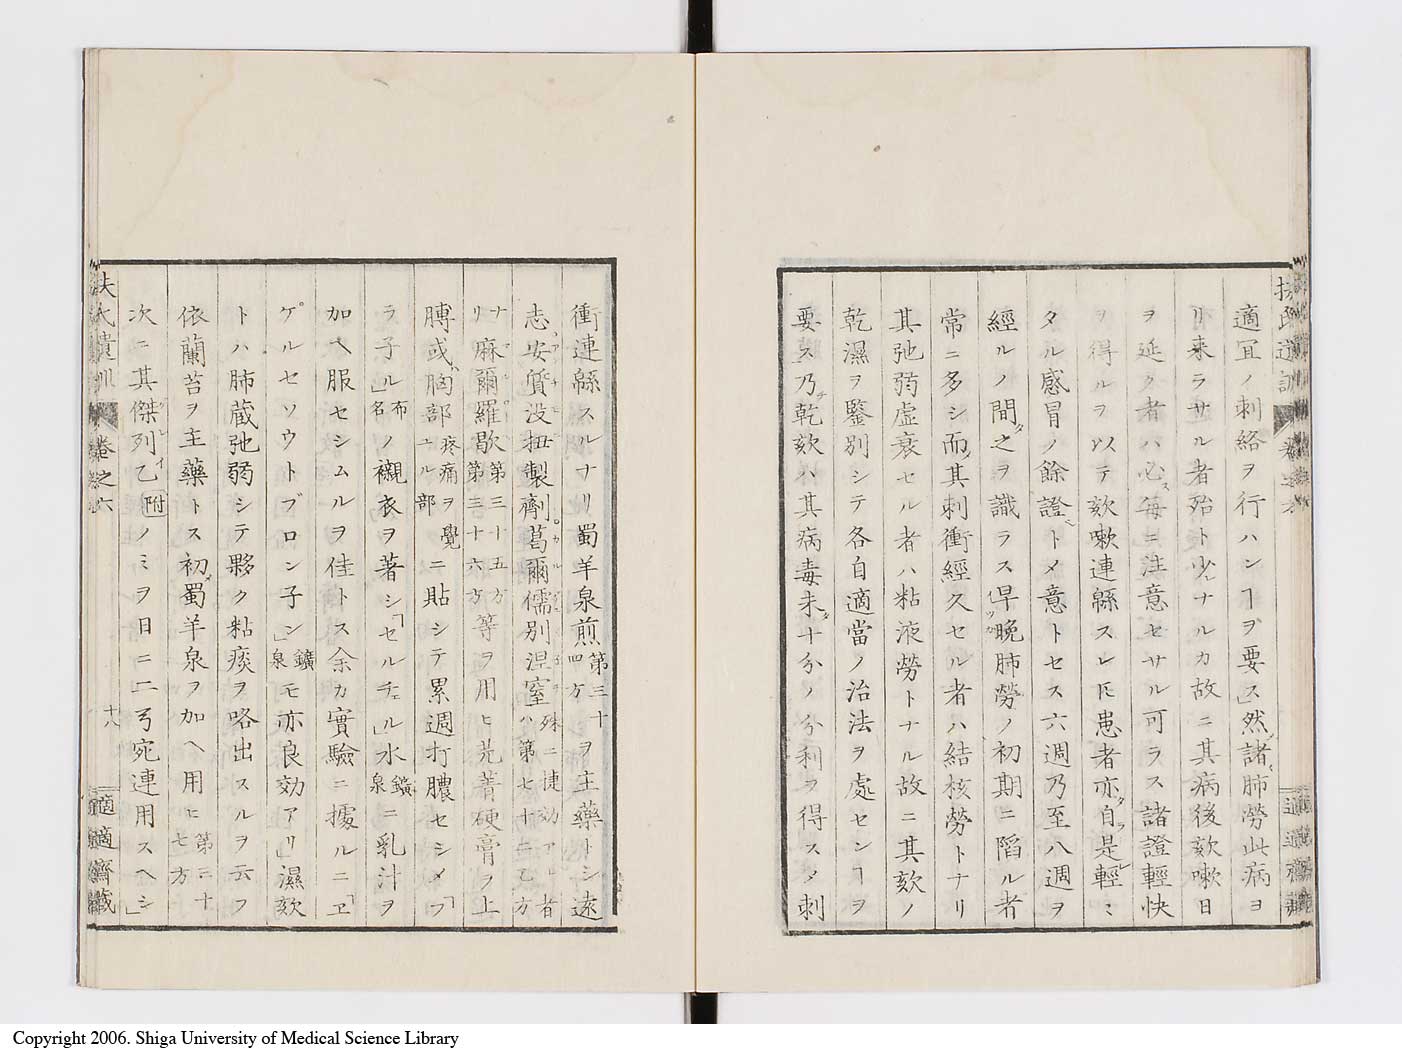 適冝ノ刺絡ヲ行ハンヿヲ要ス」然諸肺勞此病ヨ
リ来ラサル者殆ト少ナルカ故ニ其病後欬嗽日
ヲ延ク者ハ必ス毎ニ注意セサル可ラス諸證輕快
ヲ得ルヲ以テ欬嗽連緜スレ𪜈患者亦自是輕ミ
タル感冒ノ餘證トメ意トセス六週乃至八週ヲ
經ルノ間之ヲ識ラス早晩肺勞ノ初期ニ陷ル者
常ニ多シ而其刺衝經久セル者ハ結核勞トナリ
其弛弱虚衰セル者ハ粘液勞トナル故ニ其欬ノ
乾濕ヲ鑒別シテ各自適當ノ治法ヲ處センヿヲ
要ス」乃乾欬ハ其病毒未十分ノ分利ヲ得スメ刺
衝連緜スルナリ蜀羊泉煎第三十四方ヲ主藥トシ遠
志安質没扭製劑葛爾儒別涅窒殊ニ捷効アル者ハ第七十二乙方
ナリ麻爾羅歇第三十五方第三十六方等ヲ用ヒ芫菁硬膏ヲ上
膊或胸部疼痛ヲ覺ユル部ニ貼シテ累週打膿セシメ「フ
ラ子ル」布名ノ襯衣ヲ著シ「セルチェル」水鑛泉ニ乳汁ヲ
加ヘ服セシムルヲ佳トス余カ實驗ニ據ルニ「ヱ
ゲルセソウトブロン子ン」鑛泉モ亦良効アリ」濕欬
トハ肺蔵弛弱シテ夥ク粘痰ヲ咯出スルヲ云フ
依蘭苔ヲ主藥トス初蜀羊泉ヲ加ヘ用ヒ第三十七方
次ニ其傑列乙附ノミヲ日ニ二弓宛連用スヘシ」
卷之六
十八
適適齋藏